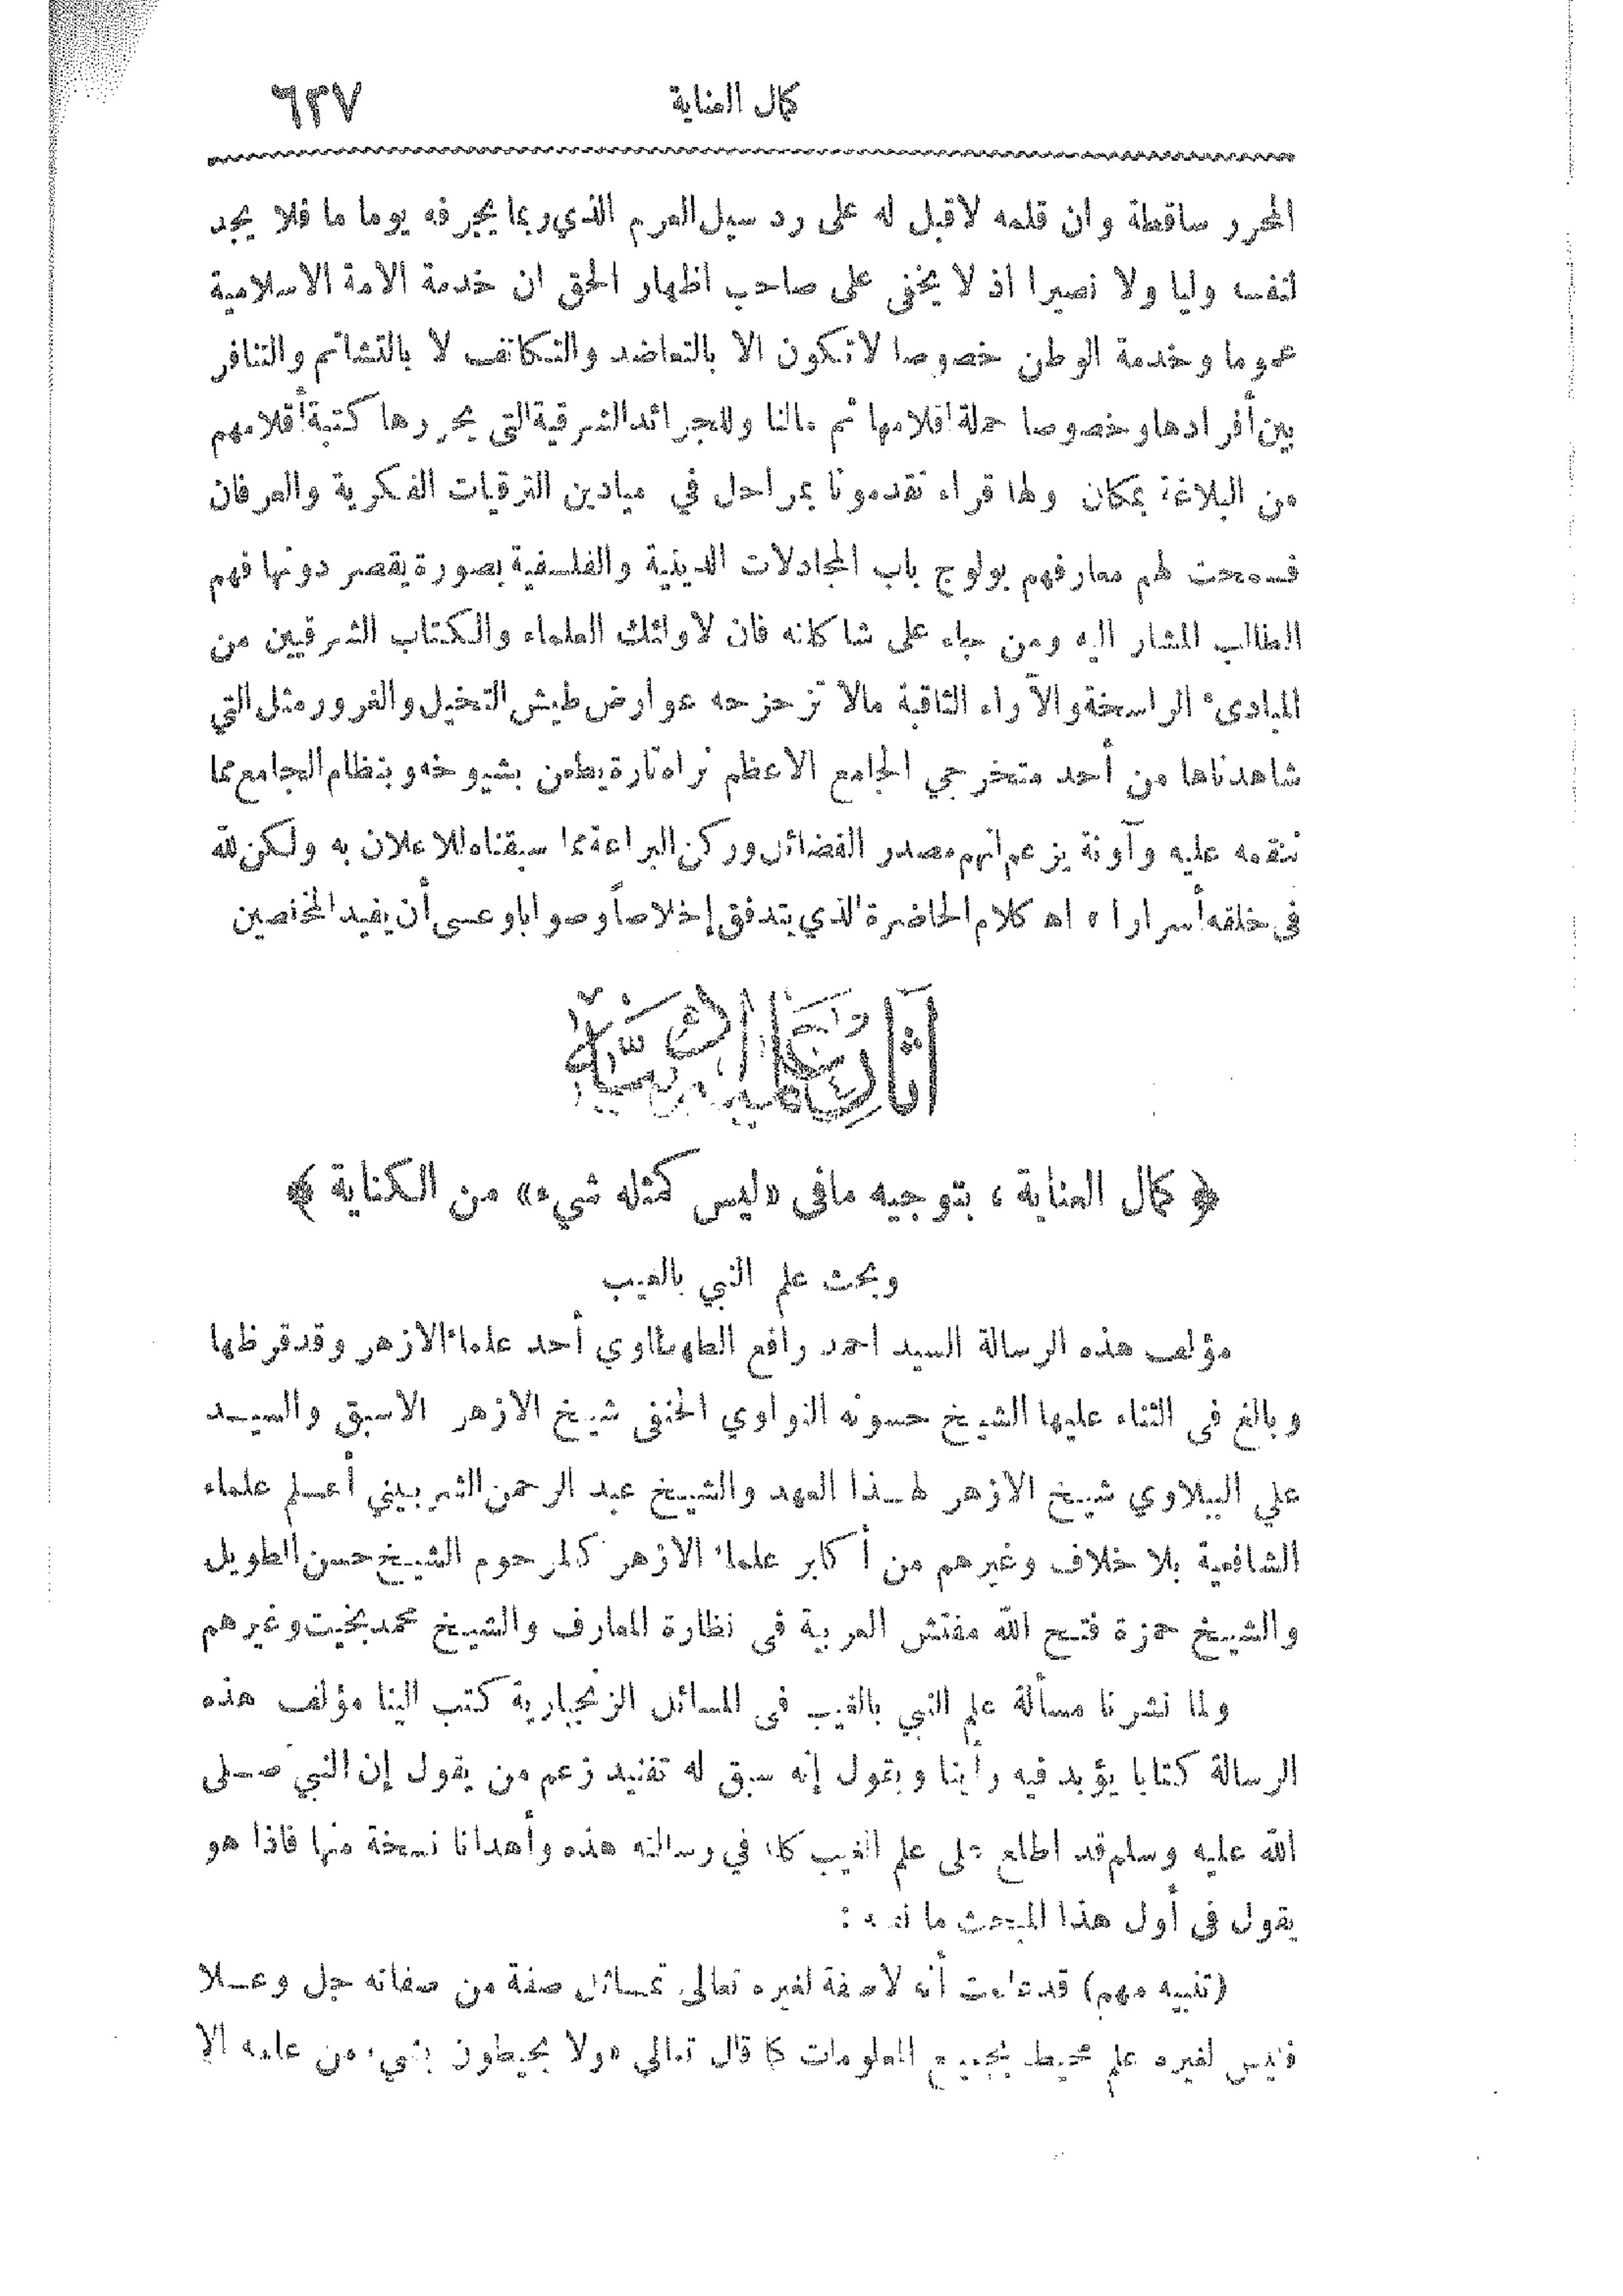 كمال العناية ٦٣٧
المحرر ساقطة وان قلمه لاقبل له على رد سيل العرم الذي ربما يجرفه يوما ما فلا يجد
لنفسه وليا ولا نصيرا اذ لا يخفى على صاحب اظهار الحق ان خدمة الامة الاسلامية
عموما وخدمة الوطن خصوصا لاتكون الا بالتعاضد والتكاتف لا بالتشاتم والتنافر
بين أفرادها وخصوصا حملة اقلامها ثم مالنا وللجرائد الشرقية التى يحررها كتبة أقلامهم
من البلاغة بمكان ولها قراء تقدمونا بمراحل في ميادين الترقيات الفكرية والعرفان
فسمحت لهم معارفهم بولوج باب المجادلات الدينية والفلسفية بصورة يقصر دونها فهم
الطالب المشار اليه ومن جاء على شاكلته فان لاولئك العلماء والكتاب الشرقيين من
المبادىء الراسخة والآراء الثاقبة مالا تزحزحه عوارض طيش التخيل والغرور مثل التي
شاهدناها من أحد متخرجي الجامع الاعظم نراه تارة يطعن بشيوخه وبنظام الجامع مما
ننقمه عليه وآونة يزعم انهم مصدر الفضائل وركن البراعة مما سبقناه للاعلان به ولكن لله
فى خلقه أسرارا ه اهـ كلام الحاضرة الذي يتدفق إخلاصاً وصوابا وعسى أن يفيد المخلصين
﴿ كمال العناية ، بتوجيه مافى «ليس كمثله شيء» من الكناية ﴾
وبحث علم النبي بالغيب
مؤلف هذه الرسالة السيد احمد رافع الطهطاوي أحد علماء الازهر وقد قرظها
وبالغ فى الثناء عليها الشيخ حسونه النواوي الحنفى شيخ الازهر الاسبق والسيد
علي الببلاوي شيخ الازهر لهذا العهد والشيخ عبد الرحمن الشربيني أعلم علماء
الشافعية بلا خلاف وغيرهم من أكابر علماء الازهر كالمرحوم الشيخ حسن الطويل
والشيخ حمزة فتح الله مفتش العربية فى نظارة المعارف والشيخ محمد بخيت وغيرهم
ولما نشرنا مسألة علم النبي بالغيب فى المسائل الزنجبارية كتب الينا مؤلف هذه
الرسالة كتابا يؤيد فيه رأينا ويقول إنه سبق له تفنيد زعم من يقول إن النبي صلى
الله عليه وسلم قد اطلع على علم الغيب كله في رسالته هذه وأهدانا نسخة منها فاذا هو
يقول فى أول هذا المبحث ما نصه :
(تنبيه مهم) قد علمت أنه لاصفة لغيره تعالى تماثل صفة من صفاته جل وعلا
فليس لغيره علم محيط بجميع المعلومات كما قال تعالى «ولا يحيطون بشيء من علمه الا